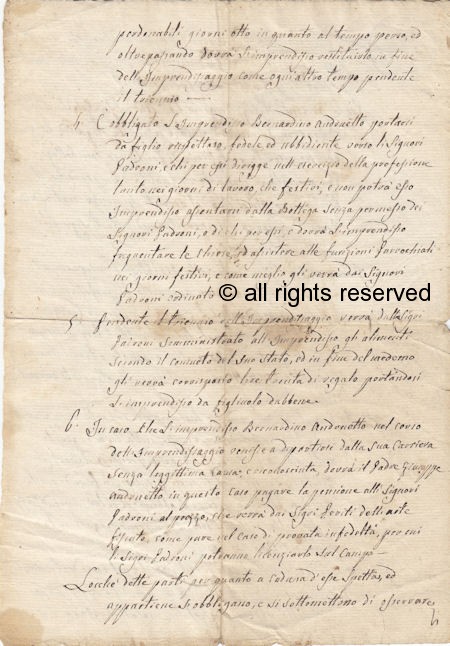 perdonabili giorni otto in quanto al tempo perso, ed
oltrepassando dovrà l'imprendisso restituirlo in fine
dell'Imprendissaggio come ogni altro tempo pendente
il triennio
4 È obbligato l'Imprendisso Bernardino Andonetto portarsi
da figlio rispettoso, fedele ed ubbidiente verso li Signori
Padroni, e chi per essi dirigge nell'esercizio della professione
tanto nei giorni di lavoro, che festivi, e non potrà esso
Imprendisso assentarsi dalla Bottega senza permesso dei
Signori Padroni, o di chi per essi, e dovrà l'imprendisso
frequentare le Chiese, ed assistere alle funzioni Parrochiali
nei giorni festivi, e come meglio gli verrà dai Signori
Padroni ordinato
© all rights reserved
5. Pendente il triennio dell'Imprendissaggio verrà dalli Sigri
Padroni somministrato all'Imprendisso gli alimenti
secondo il consueto del suo stato, ed in fine del medemo
gli verrà corrisposto lire trenta di regalo portandosi
l'imprendisso da figliuolo dabbene.
6. In caso che l'imprendisso Bernardino Andonetto nel corso
dell'Imprendissaggio venghe a dipartirsi dalla sua Carriera
senza leggittima causa, e riconosciuta, dovrà il Padre Giuseppe
Andonetto in questo caso pagare la pensione alli Signori
Padroni al prezzo, che verrà dai Sigri Periti dell'arte
fissato, come pure nel caso di provata infedeltà, per cui
li Sigri Padroni potranno licenziarlo sul Campo
Locchè dette parti per quanto a caduna d'esse spetta, ed
appartiene si obbligano, e si sottomettono di osservare,